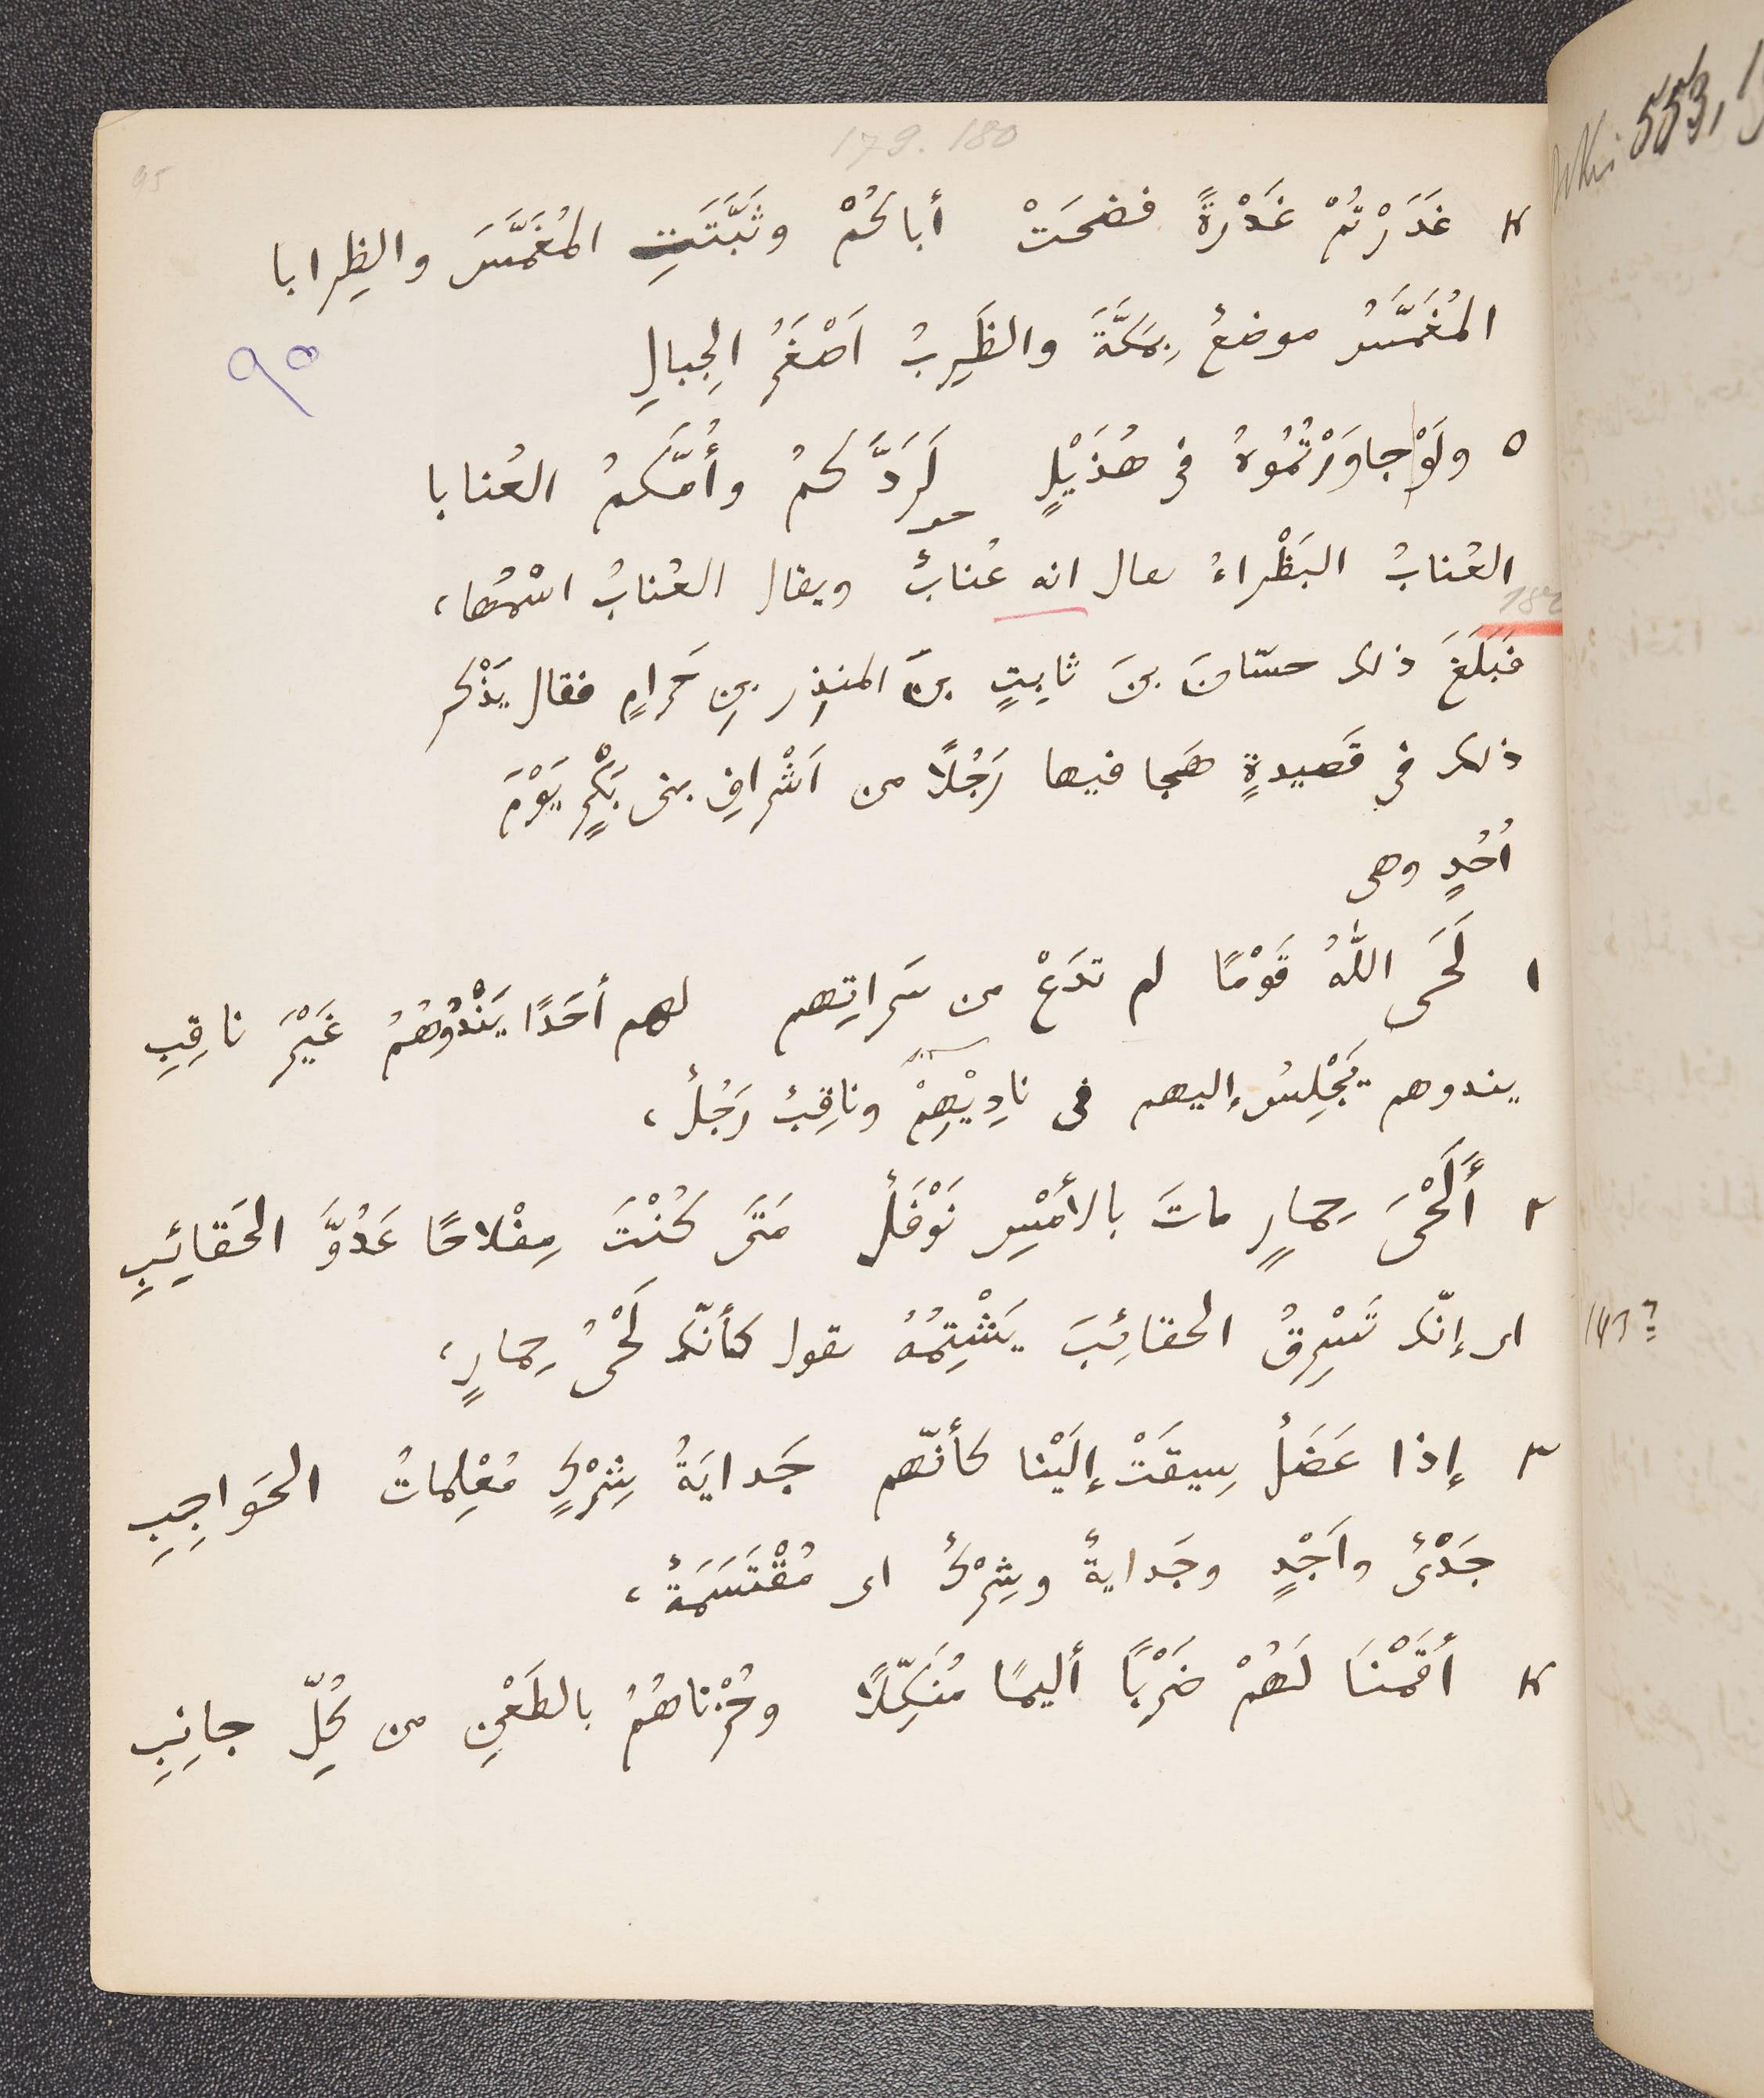 179. 180
95
٤ غَدَرْتُمْ غَدْرَةً فضحَتْ أباكُمْ وثَبَّتَتِ المُغَمَّسَ والظِرابا
المُغَمَّسُ موضعٌ بِمَكَّةَ والظَرِبُ اَصْغَرُ الجِبالِ
٩٥
٥ ولَوْ جاوَرْتُمُوهُ فى هُذَيْلٍ لَرَدَّكمُ وأُمَّكمُ العُنابا
العُنابُ البَظْراءُ يقال انه عُنابٌ ويقال العُنابُ اسْمُها،
فبَلَغَ ذلك حسّانَ بنَ ثابِتٍ بنِ المنذِرِ بنِ حَرامٍ فقال يَذْكر
ذلك فى قَصيدةٍ هَجا فيها رَجُلًا من اَشْرافِ بنى بَكْرٍ يَوْمَ
اُحُدٍ وهى
١ لَحَى اللّٰهُ قَوْمًا لم تدَعْ من سَراتِهم لهم أحَدًا يَنْدُوهُمُ غَيْرَ ناقِبِ
يندوهم يَجْلِسُ إليهم فى نادِيْهِمْ وناقِبٌ رَجُلٌ،
٢ أَلَحْىَ حِمارٍ ماتَ بالأمْسِ نَوْفَلٌ مَتَى كُنْتَ مِفْلاحًا عَدُوَّ الحَقائِبِ
اى إنّك تَسْرِقُ الحقائِبَ يَشْتِمُهُ يقول كأنّك لَحْىُ حِمارٍ،
143?
٣ إذا عَضَلٌ سِيقَتْ إلَيْنا كأنّهم جَدايَةُ شِرْكٍ مُعْلِماتُ الحَواجِبِ
جَدْىٌ واَجْدٍ وجَدايةٌ وشِرْكٌ اى مُقْتَسَمَةٌ،
٤ أقَمْنَا لَهُمْ ضَرْبًا أليمًا مُنَكِّلًا وحُزْناهُمُ بالطَعْنِ من كُلِّ جانِبِ
553,